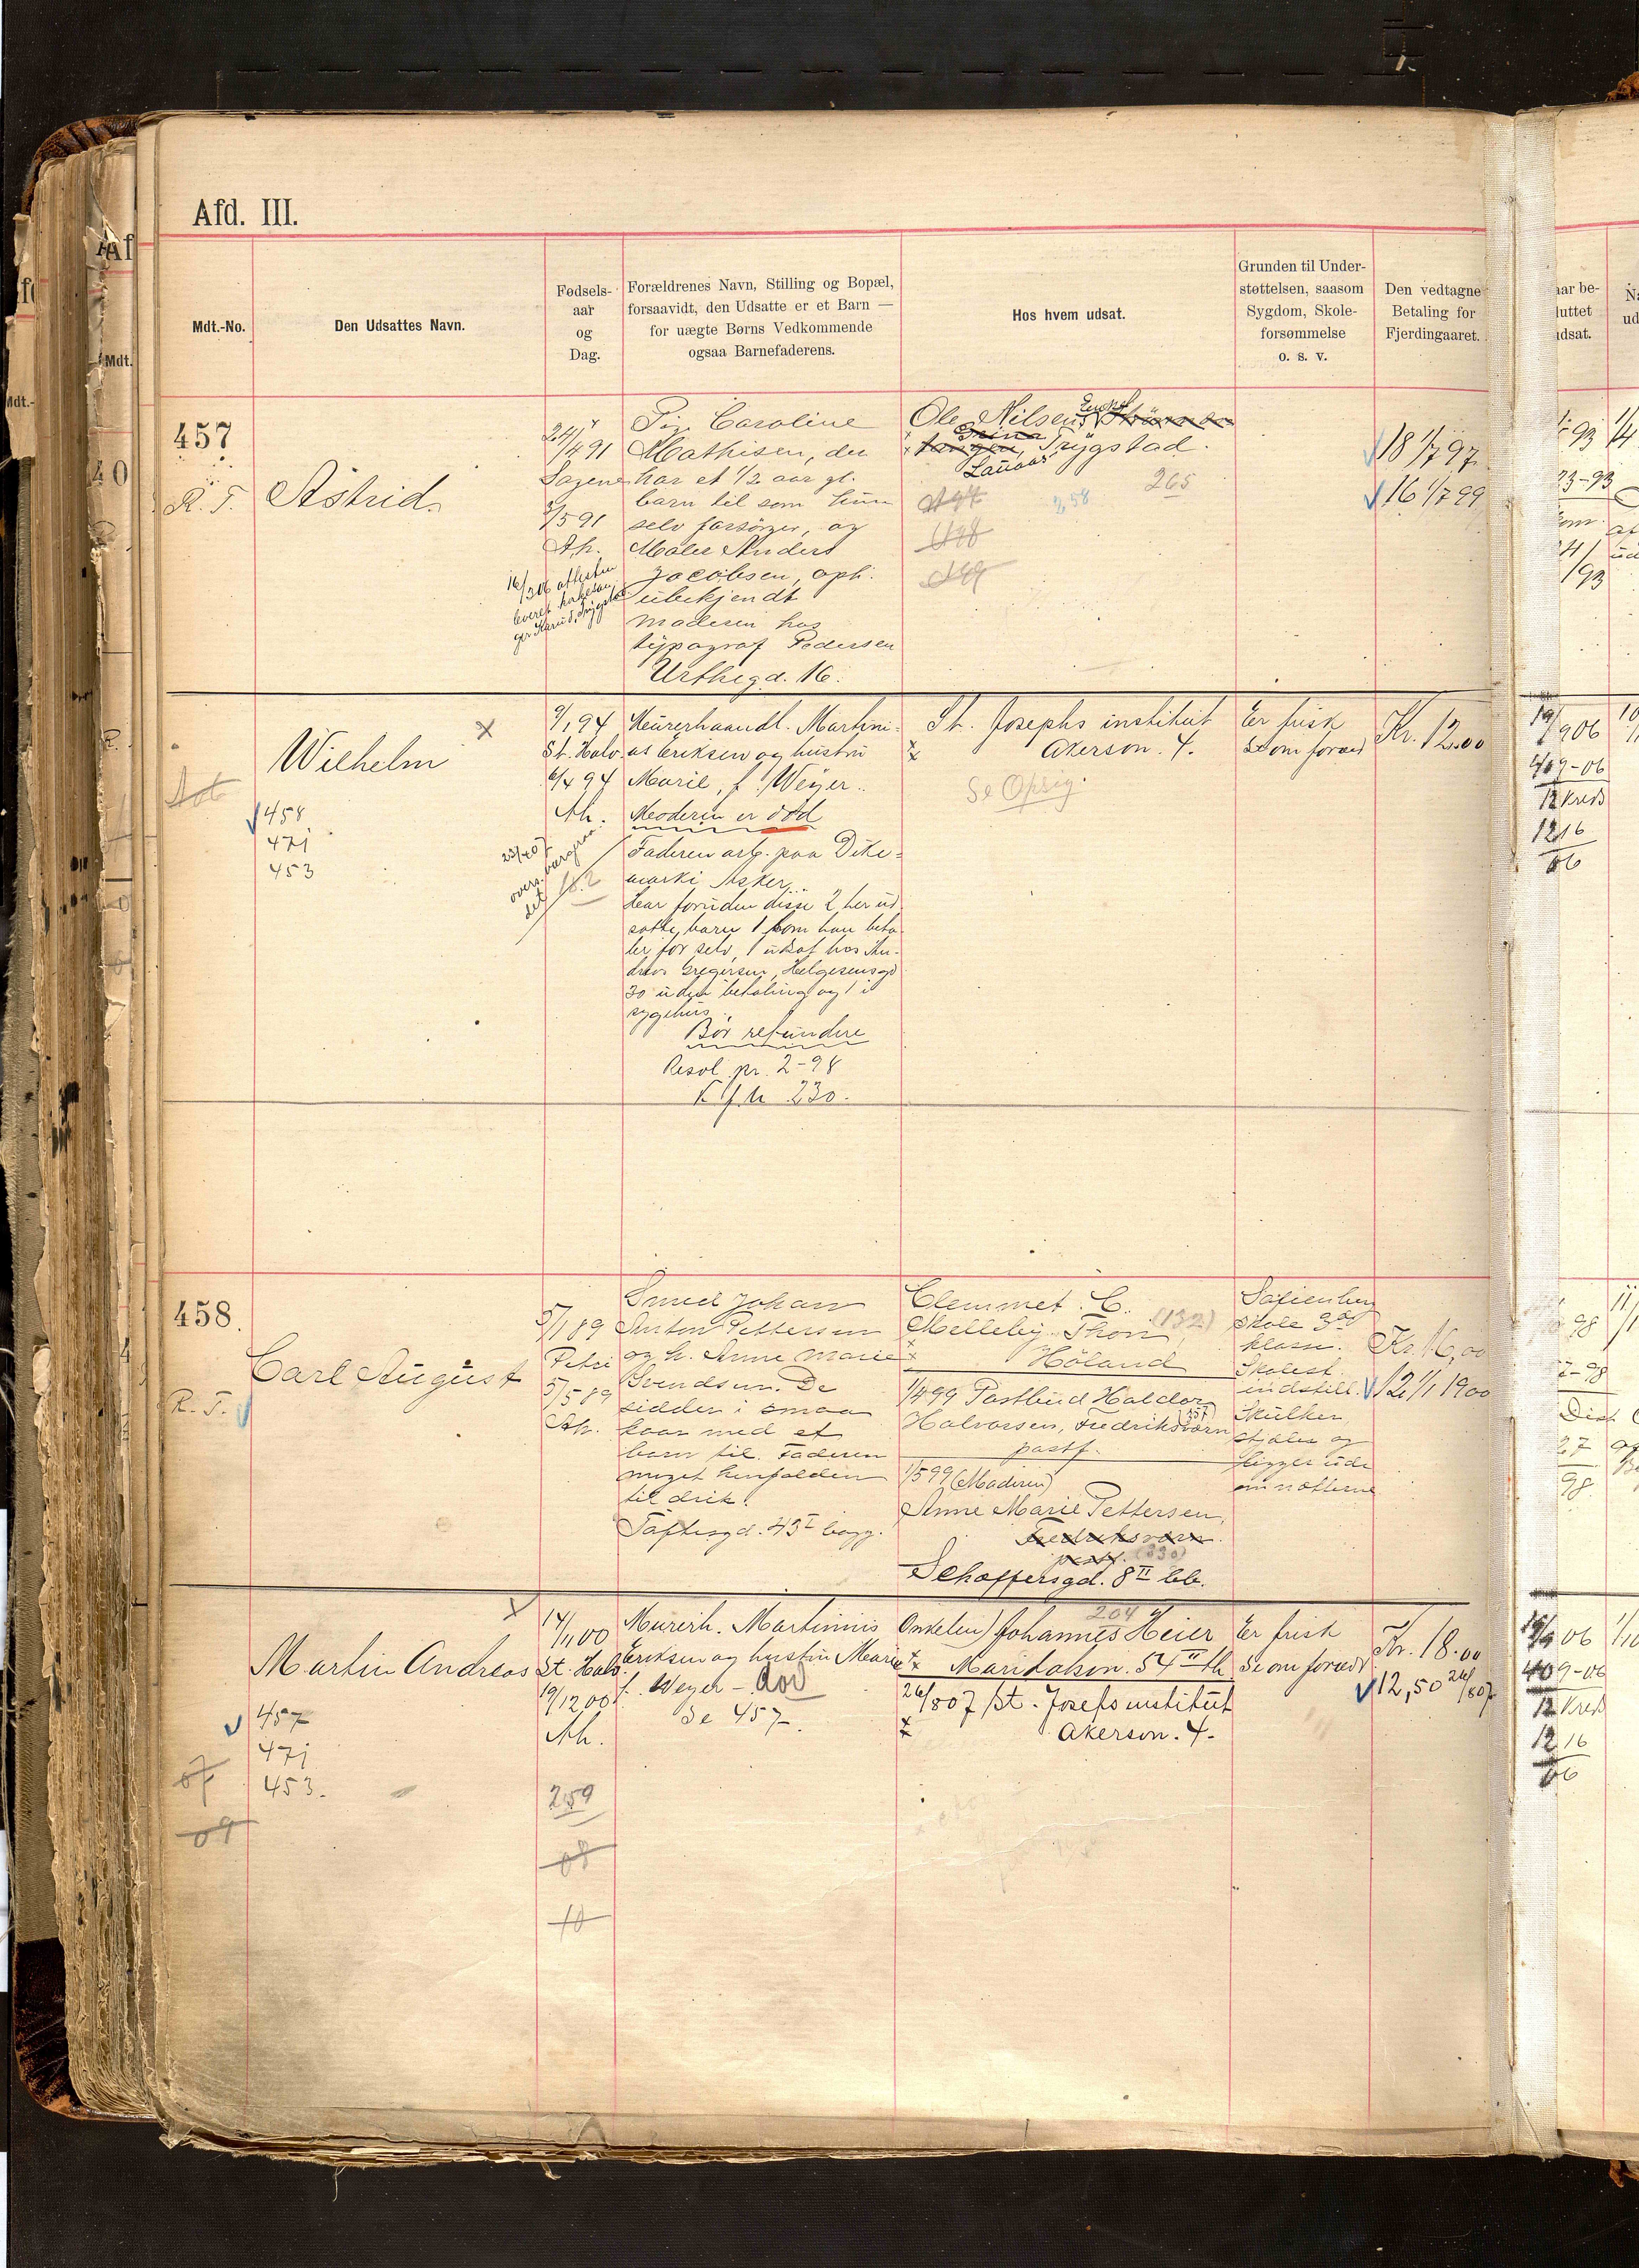 Afd. III.
Mdt.-No.
Den Udsattes Navn.
Fødsels-
aar
og
Dag.
Forældrenes Navn, Stilling og Bopæl,
forsaavidt, den Udsatte er et Barn —
for uægte Børns Vedkommende
ogsaa Barnefaderens.
Hos hvem udsat.
Grunden til Under-
støttelsen, saasom
Sygdom, Skole-
forsømmelse
o. s. v.
Den vedtagne
Betaling for
Fjerdingaaret.
457
R. T.
Astrid
24/4 91
Sagene
3/5 91
Ah.
Pig. Caroline
Mathisen, der
har et 1/2 aar gl.
barn til som hun
selv forsörger, og
Maler Anders
Jacobsen, oph.
ubekjendt
moderen hos
typograf Pedersen
Urthegd. 16.
Ole Nilsen
Trygstad.
265
2,58
18 1/7 97
16 1/7 99
Wilhelm
458
471
453
9/1 94
St. Halv.
6/4 94
Ah.
Murerhaandl. Martini-
us Eriksen og hustru
Marie, f. Weyer.
Moderen er död
Faderen arb. paa Dike-
mark i Asker.
Har foruden disse 2 her ud
satte barn 1 som han beta
ler for selv, 1 udsat hos An-
dreas Gregersen, Helgesensgd
30 uden betaling og 1 i
sygehus.
Bör refundere
Resol. pr. 2-98
230.
St. Josephs institut
Akersvn. 4.
Er frisk
Se om foræld
Kr. 12.00
458.
R. T.
Carl August
5/1 89
Petri
5/5 89
Ah.
Smed Johan
Anton Pettersen
og h. Anne Marie
Svendsen. De
sidder i smaa
kaar med et
barn til. Faderen
meget henfalden
til drik.
Toftesgd. 43 I bagg.
Clemmet C.
Melleby Thon (132)
Höland
1/4 99 Postbud Haldor
Halvorsen, Fredriksværn
postf.
1/5 99 (Moderen)
Anne Marie Pettersen,
Fredriksværn
postf. (330)
Schoffersgd. 8 II
Sofienberg
Skole 3die
klasse.
Skolest.
indstill.
Skulker,
stjæler og
ligger ude
om nætterne
Kr. 16,00
12, 1/1 1900
Martin Andreas
457
471
453.
07
09
14/11 00
St. Halv.
19/12 00
Ah.
259
08
10
Murerh. Martinius
Eriksen og hustru Marie
f. Weyer – död
Se 457.
204
Onkelen) Johannes Heier
Maridalsvn. 54 II th
26/8 07 St. Josefs institut
Akersvn. 4.
Er frisk
Se om foræld
Kr. 18.00
12,50 26/8 07